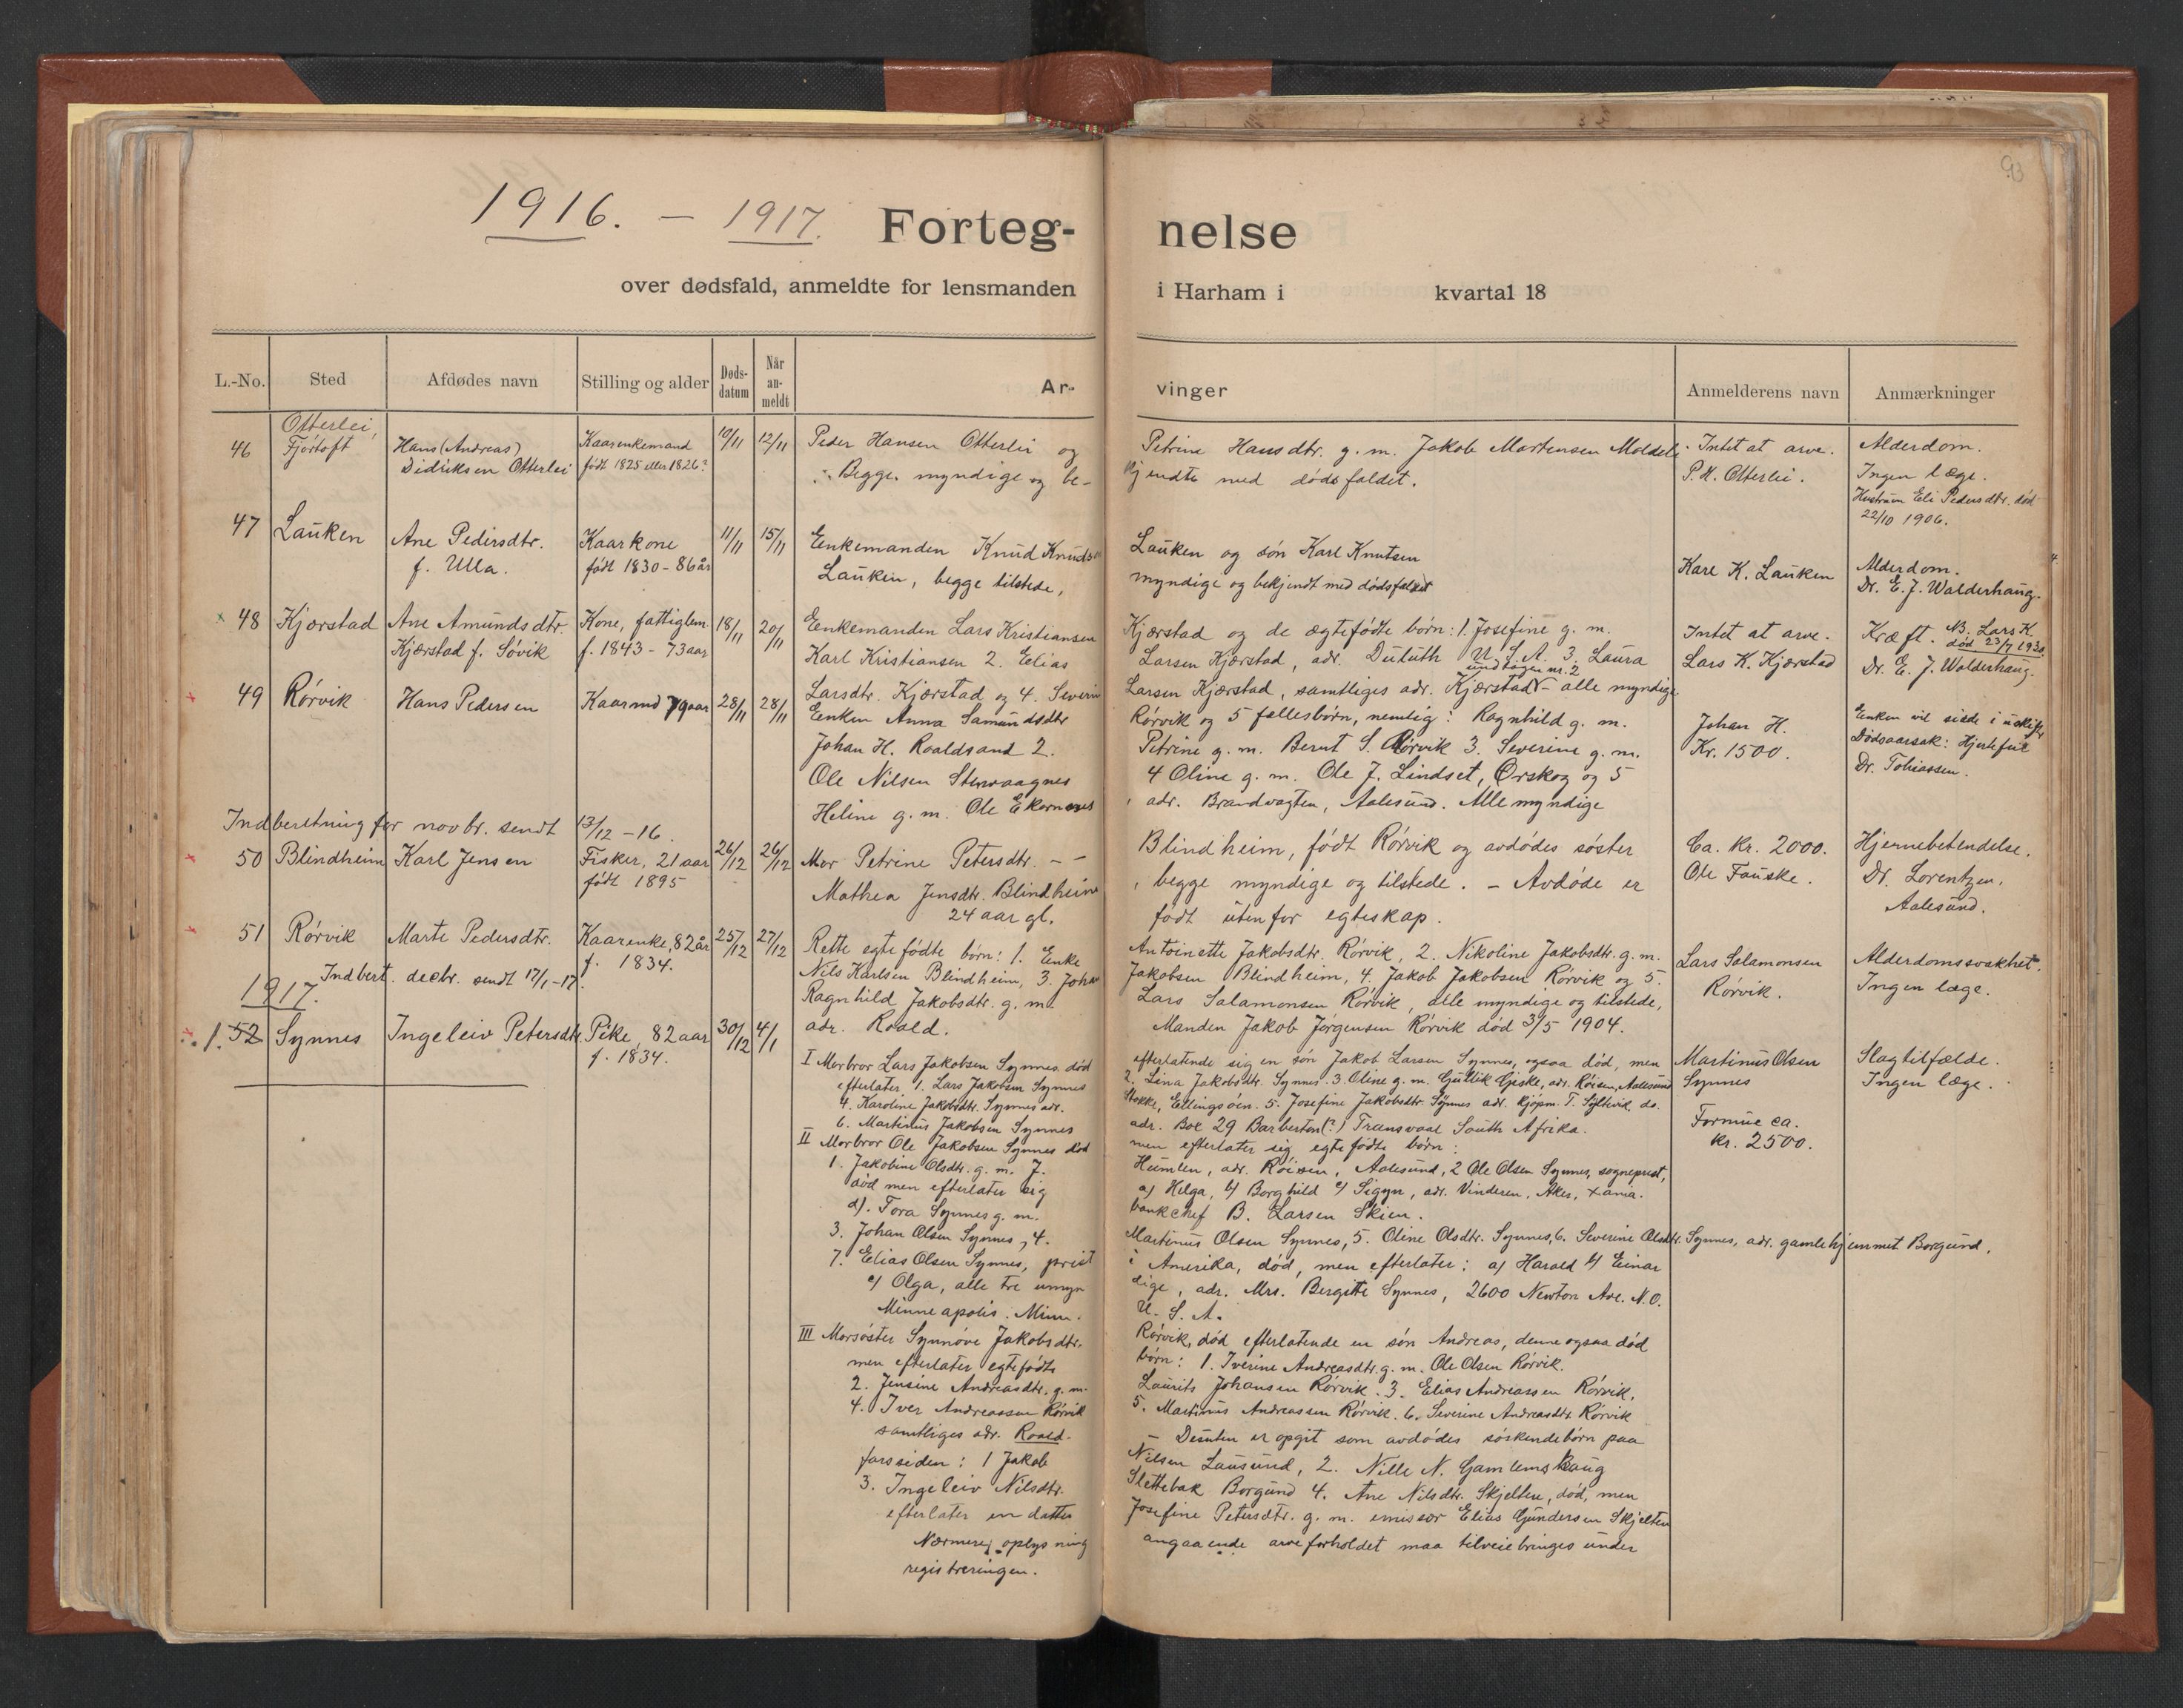 93
1916. — 1917. Forteg- nelse
over dødsfald, anmeldte for lensmanden i Harham i kvartal 18
L.-No. Sted Afdødes navn Stilling og alder Døds-datum Når an-meldt Ar- vinger Anmelderens navn Anmærkninger
Otterlei,
46 Fjörtoft Hans (Andreas) Kaarenkemand 10/11 12/11 Peder Hansen Otterlei og Petrine Hansdtr. g. m. Jakob Martensen Intet at arve. Alderdom.
Didriksen Otterlei født 1825 eller 1826? Begge myndige og be- kjendte med dödsfaldet. P. H. Otterlei. Ingen læge.
Hustruen Eli Pedersdtr. död
22/10 1906.
47 Lauken Ane Pedersdtr. Kaarkone 11/11 15/11 Enkemanden Knud Knudsen Lauken og sön Karl Knutsen
f. Ulla. född 1830 - 86 år Lauken, begge tilstede, myndige og bekjendt med dödsfaldet Kare K. Lauken Alderdom.
Dr. E. J. Walderhaug.
48 Kjærstad Ane Amundsdtr. Kone, fattiglem. 18/11 20/11 Enkemanden Lars Kristiansen Kjærstad og de ægtefödte börn: 1. Josefine g. m. Intet at arve. Kræft. NB. Lars K.
död 23/7 1930
Kjærstad f. Sövik f. 1843 - 73 aar Karl Kristiansen 2. Elias Larsen Kjærstad, adr. Duluth U. S. A. 3. Laura Lars K. Kjærstad Dr. E. J. Walderhaug.
undtagen nr. 2
Larsdtr. Kjærstad og 4. Severin Larsen Kjærstad, samtliges adr. Kjærstad - alle myndige
49 Rörvik Hans Pedersen Kaarmd 79 aar 28/11 28/11 Enken Anna Samundsdtr Rörvik og 5 fællesbörn, nemlig: Ragnhild g. m. Johan H. Enken vil sidde i uskifte
Johan H. Roaldsand 2. Petrine g. m. Bernt S. Rörvik 3. Severine g. m. Kr. 1500. Dödsaarsak: Hjertefeil
Ole Nilsen Stenvaagnes 4 Oline g. m. Ole J. Lindset, Örskog og 5 Dr. Tobiassen.
Heline g. m. Ole Ekornnes, adr. Brandvagten, Aalesund. Alle myndige
Indberetning for novbr. sendt 13/12 - 16.
50 Blindheim Karl Jensen Fisker, 21 aar 26/12 26/12 Mor Petrine Petersdtr. - - Blindheim, född Rörvik og avdödes söster Ca. kr. 2000. Hjernebetendelse.
född 1895 Mathea Jensdtr. Blindheim, begge myndige og tilstede. - Avdöde er Ole Fauske. Dr. Lorentzen,
24 aar gl. född utenfor egteskap. Aalesund.
51 Rörvik Marte Pedersdtr. Kaarenke, 82 år 25/12 27/12 Rette egtefödte börn: 1. Enke Antoinette Jakobsdtr. Rörvik, 2. Nikoline Jakobsdtr. g. m. Lars Salamonsen Alderdomssvakhet.
f. 1834. Nils Karlsen Blindheim, 3. Johan Jakobsen Blindheim, 4. Jakob Jakobsen Rörvik og 5. Rörvik. Ingen læge.
Indbert. decbr. sendt 17/1-17.
1917.
Ragnhild Jakobsdtr. g. m. Lars Salamonsen Rörvik, alle myndige og tilstede,
adr. Roald. Manden Jakob Jørgensen Rörvik död 3/5 1904.
1. 52 Synnes Ingeleiv Petersdtr. Pike, 82 aar 30/12 4/1
f. 1834.
I Morbror Lars Jakobsen Synnes död efterlatende sig en sön Jakob Larsen Synnes, ogsaa död, men Martinus Olsen Slagtilfælde.
efterlater 1. Lars Jakobsen Synnes 2. Lina Jakobsdtr. Synnes. 3. Oline g. m. Gullik Giske, adr. Röisen, Aalesund Synnes Ingen læge.
4. Karoline Jakobsdtr. Synnes adr. Stokke, Ellingsöen. 5. Josefine Jakobsdtr. Synnes adr. kjöpm. T. do.
6. Martinus Jakobsen Synnes adr. Box 29 Barberton (?) Transvaal South Afrika. Formue ca.
II Morbror Ole Jakobsen Synnes död men efterlater sig egtefödte börn: kr. 2500.
1. Jakobine Olsdtr. g. m. J. Humlen, adr. Röisen, Aalesund, 2 Ole Olsen Synnes, sogneprest,
död men efterlater sig a) Helga, b) Borghild c) Sigyn, adr. Vinderen, Aker, Xania.
d). Tora Synnes g. m. bankchef B. Larsen Skien.
3. Johan Olsen Synnes, 4. Martinus Olsen Synnes, 5. Oline Olsdtr. Synnes, 6. Severine Olsdtr. Synnes, adr. gamlehjemmet Borgund.
7. Elias Olsen Synnes, prest i Amerika, död, men efterlater: a) Harald b) Einar
c) Olga, alle tre umyn dige, adr. Mrs. Bergitte Synnes, 2600 Newton Ave. N.O.
Minneapolis. Minn. U. S. A.
III Morsöster Synnöve Jakobsdtr. Rörvik, död efterlatende en sön Andreas, denne ogsaa död
men efterlater egtefödte börn: 1. Iverine Andreasdtr. g. m. Ole Olsen Rörvik.
2. Jensine Andreasdtr. g. m. Laurits Johansen Rörvik. 3. Elias Andreassen Rörvik,
4. Iver Andreassen Rörvik 5. Martinus Andreassen Rörvik. 6. Severine Andreasdtr. Rörvik
samtliges adr. Roald. - Desuten er opgit som avdödes söskendebörn paa
farssiden: 1 Jakob Nilsen Lausund, 2. Nille N. Gamlemshaug
3. Ingeleiv Nilsdtr. Slettebak Borgund 4. Ane Nilsdtr. Skjelten, död, men
efterlater en datter Josefine Petersdtr. g. m. emissær Elias Gundersen Skjelten
Nærmere oplysning angaaende arveforholdet maa tilveiebringes under
registreringen.